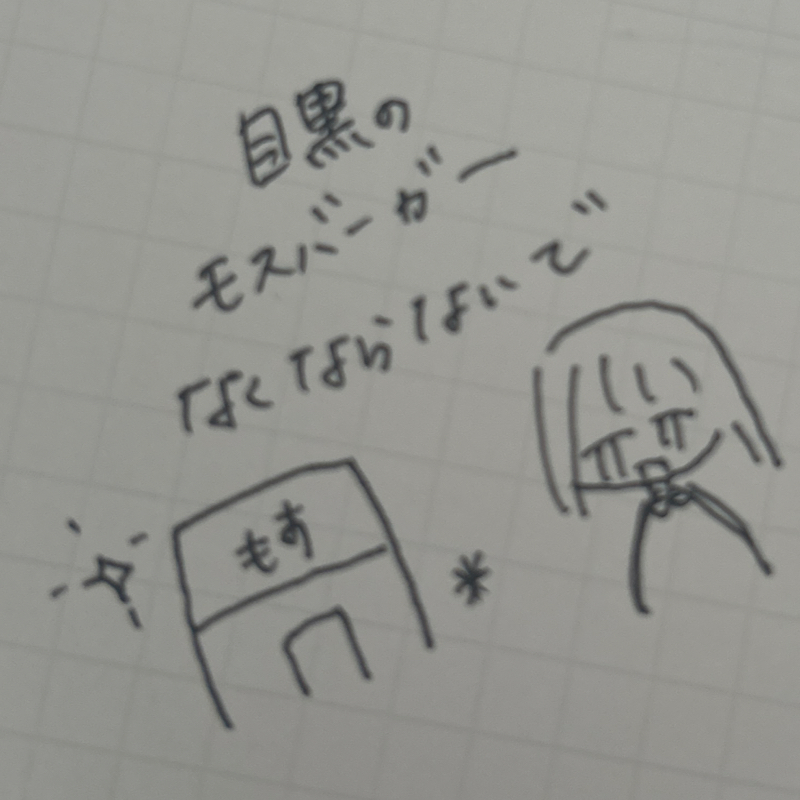 目黒の
モスバーガー
なくならないで
もす